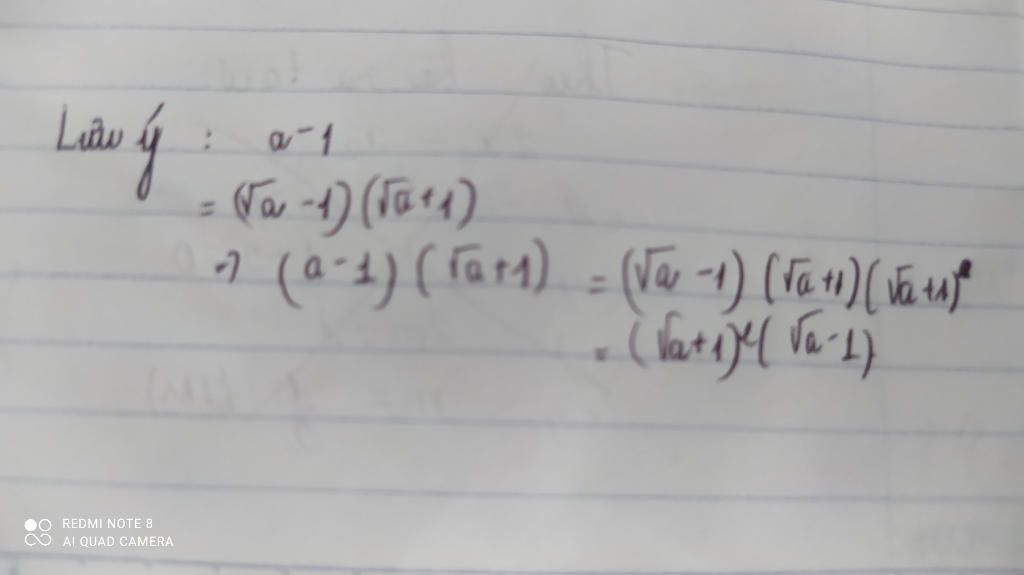 Lưu ý : a - 1
= (√a - 1) (√a + 1)
→ (a - 1) (√a + 1) = (√a - 1) (√a + 1) (√a + 1)
= (√a + 1)² (√a - 1)
REDMI NOTE 8
AI QUAD CAMERA